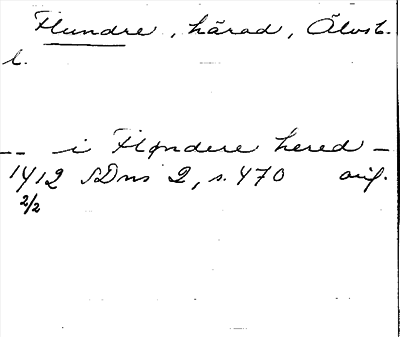 Flundre, härad, Älvsb.
l.
-- i Fløndere hered --
1412 SDns 2, s. 470 orig.
2/2